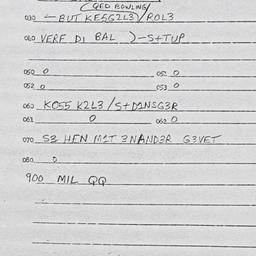 (GED BOWLING)
030 ← BUT KE5G2L3)/ROL3
040 VERF DI BAL )-S+TUP
050 0 051 0
052 0 053 0
060 KO55 K2L3/S+D1NSG3R
061 0 062 0
070 S3 HEN M1T 3NAND3R G3VET
080 0
900 MIL QQ